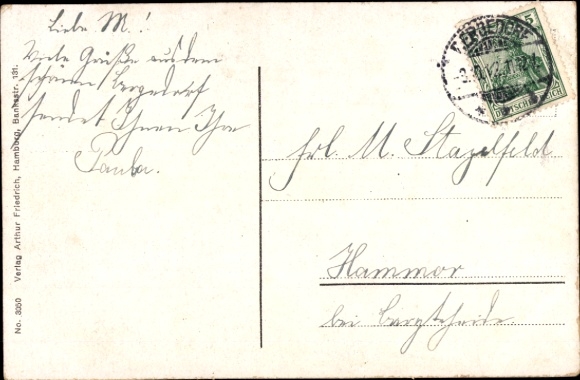 Liebe M.!
Viele Grüße aus dem
schönen Bergedorf
sendet Ihnen Ihre
Paula.
Frl. M. Stapelfeld
Hammor
bei Bargteheide
BERGEDORF
5
DEUTSCHES REICH
No. 3350 Verlag Arthur Friedrich, Hamburg, Banksstr. 131.